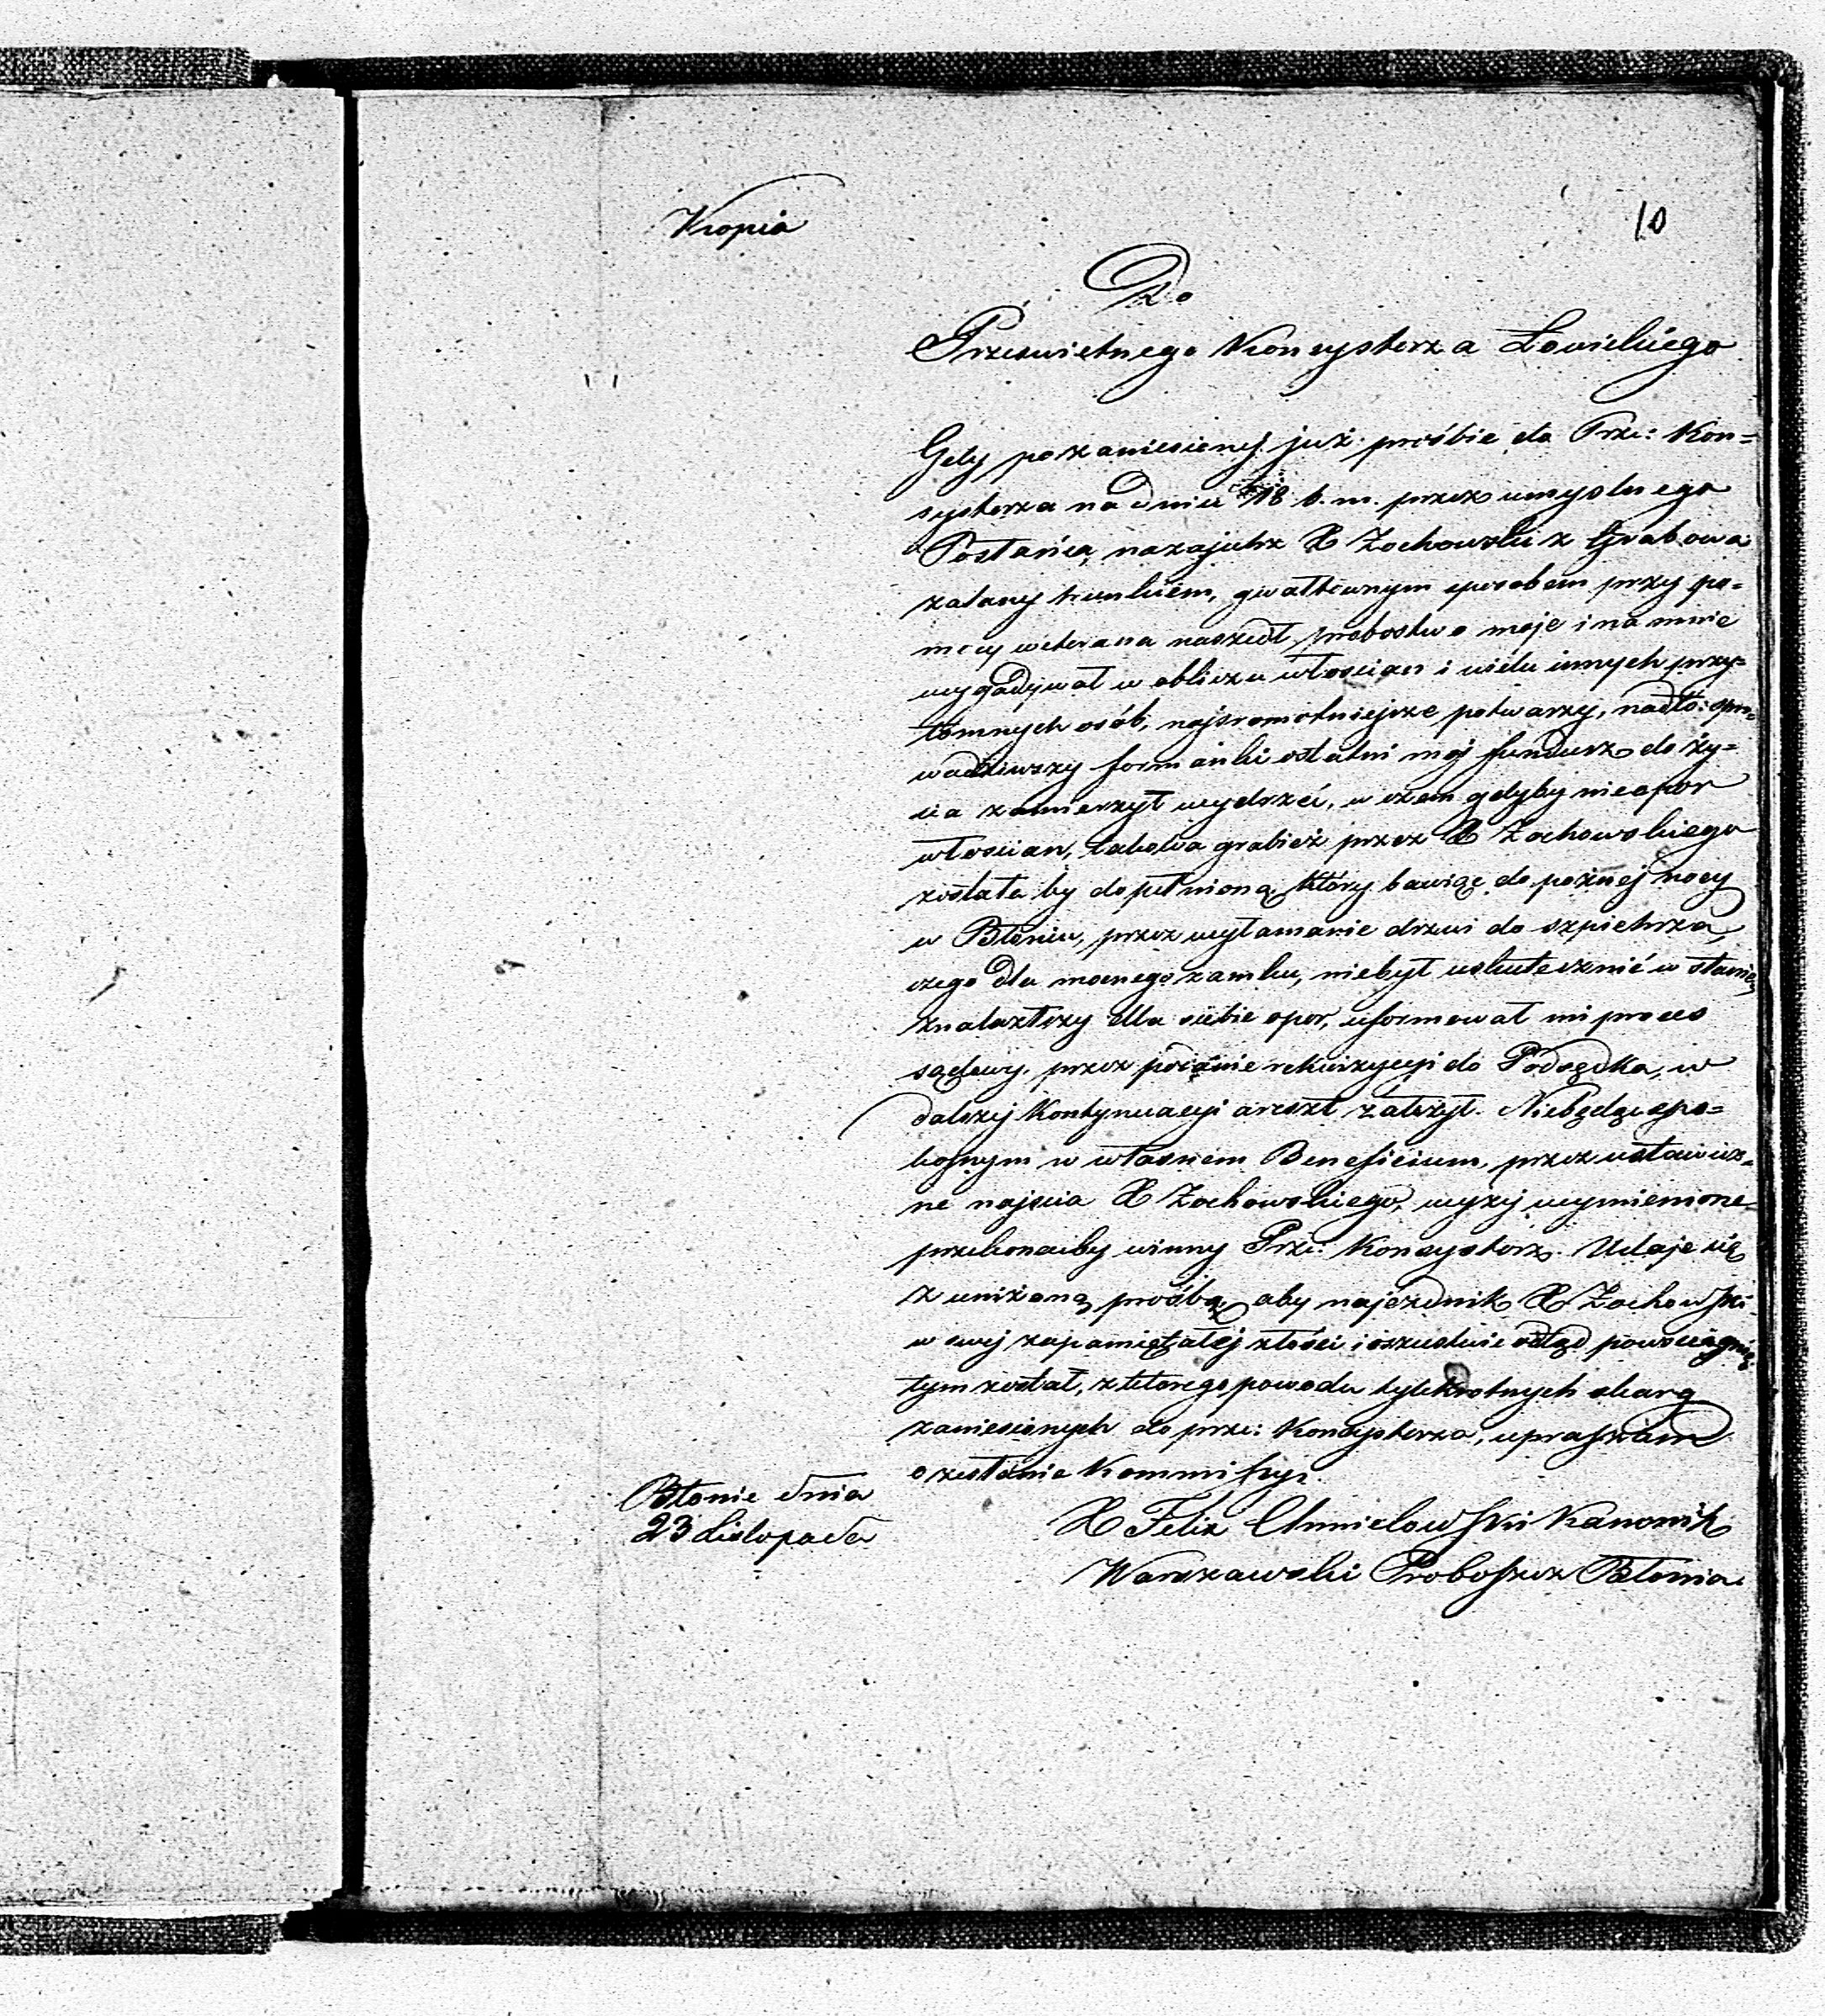 Kopia
10
Do
Prześwietnego Konsystorza Łowickiego
Gdy po zaniesionej już prośbie do Prze: Kon=
systorza na dniu 18 b. m. przez umyslnego
Posłańca, nazajutrz X Zochowski z Grabowa
zalany trunkiem, gwałtownym sposobem przy po=
mocy weterana naszedł probostwo moje i na mnie
wygadywał w obliczu włoscian i wielu innych przy=
tomnych osób, najsromotniejsze potwarzy, nadto: spro
wadziwszy formanki ostatni moj fundusz do ży=
cia zamierzył wydrzeć, w czem gdyby nie opor
włoscian, takowa grabież przez X Zochowskiego
została by dopełnioną, który bawiąc do poźnej nocy
w Błoniu, przez wyłamanie drzwi do szpichrza,
czego dla mocnego zamku, niebył uskutecznić w stanie,
znalazłszy dla siebie opor, uformował mi proces
sądowy, przez podanie rekwizycyi do Podsędka, w
dalszej kontynuacyi areszt założył. Niebędąc spo=
kojnym w własnem Beneficium, przez ustawicz=
ne najscia X Zochowskiego, wyżej wymienione
przekonacby winny Prze: Konsystorz. Udaje się
z uniżoną prośbą, aby najezdnik X Zochowski
w swej zapamiętałej złości i oszustwie odtąd powsciągnię
tym został, z którego powodu tylekrotnych skarg
zaniesionych do prze: Konsystorza, upraszam
o zesłanie Kommissyi.
Błonie dnia
23 Listopada
X Felix Chmielowski Kanonik
Warszawski Proboszcz Błonia